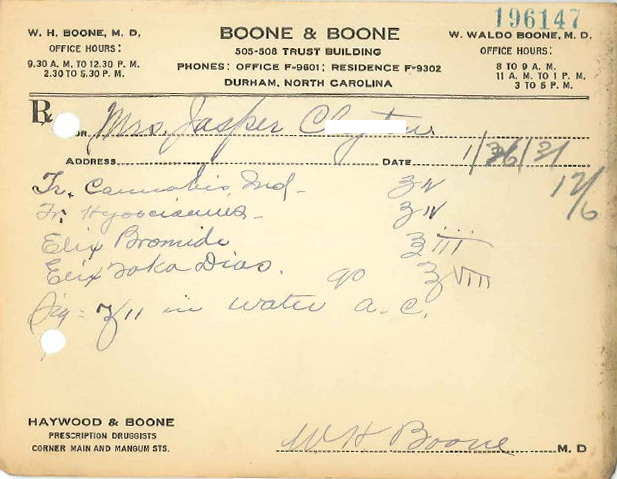 196147
W. H. BOONE, M. D.
OFFICE HOURS:
9.30 A. M. TO 12.30 P. M.
2.30 TO 5.30 P. M.
BOONE & BOONE
505-508 TRUST BUILDING
PHONES: OFFICE F-9601; RESIDENCE F-9302
DURHAM, NORTH CAROLINA
W. WALDO BOONE, M. D.
OFFICE HOURS:
8 TO 9 A. M.
11 A. M. TO 1 P. M.
3 TO 5 P. M.
℞
OR Mrs. Jasper
ADDRESS DATE 1/26/31
Tr. Cannabis Ind - ʒ iv
Tr. Hyosciamus - ʒ iv
Elix Bromide ℥ iii
Elix Dias. qs ℥ viii
Sig: ʒ ii in water a.c.
HAYWOOD & BOONE
PRESCRIPTION DRUGGISTS
CORNER MAIN AND MANGUM STS.
W H Boone M. D